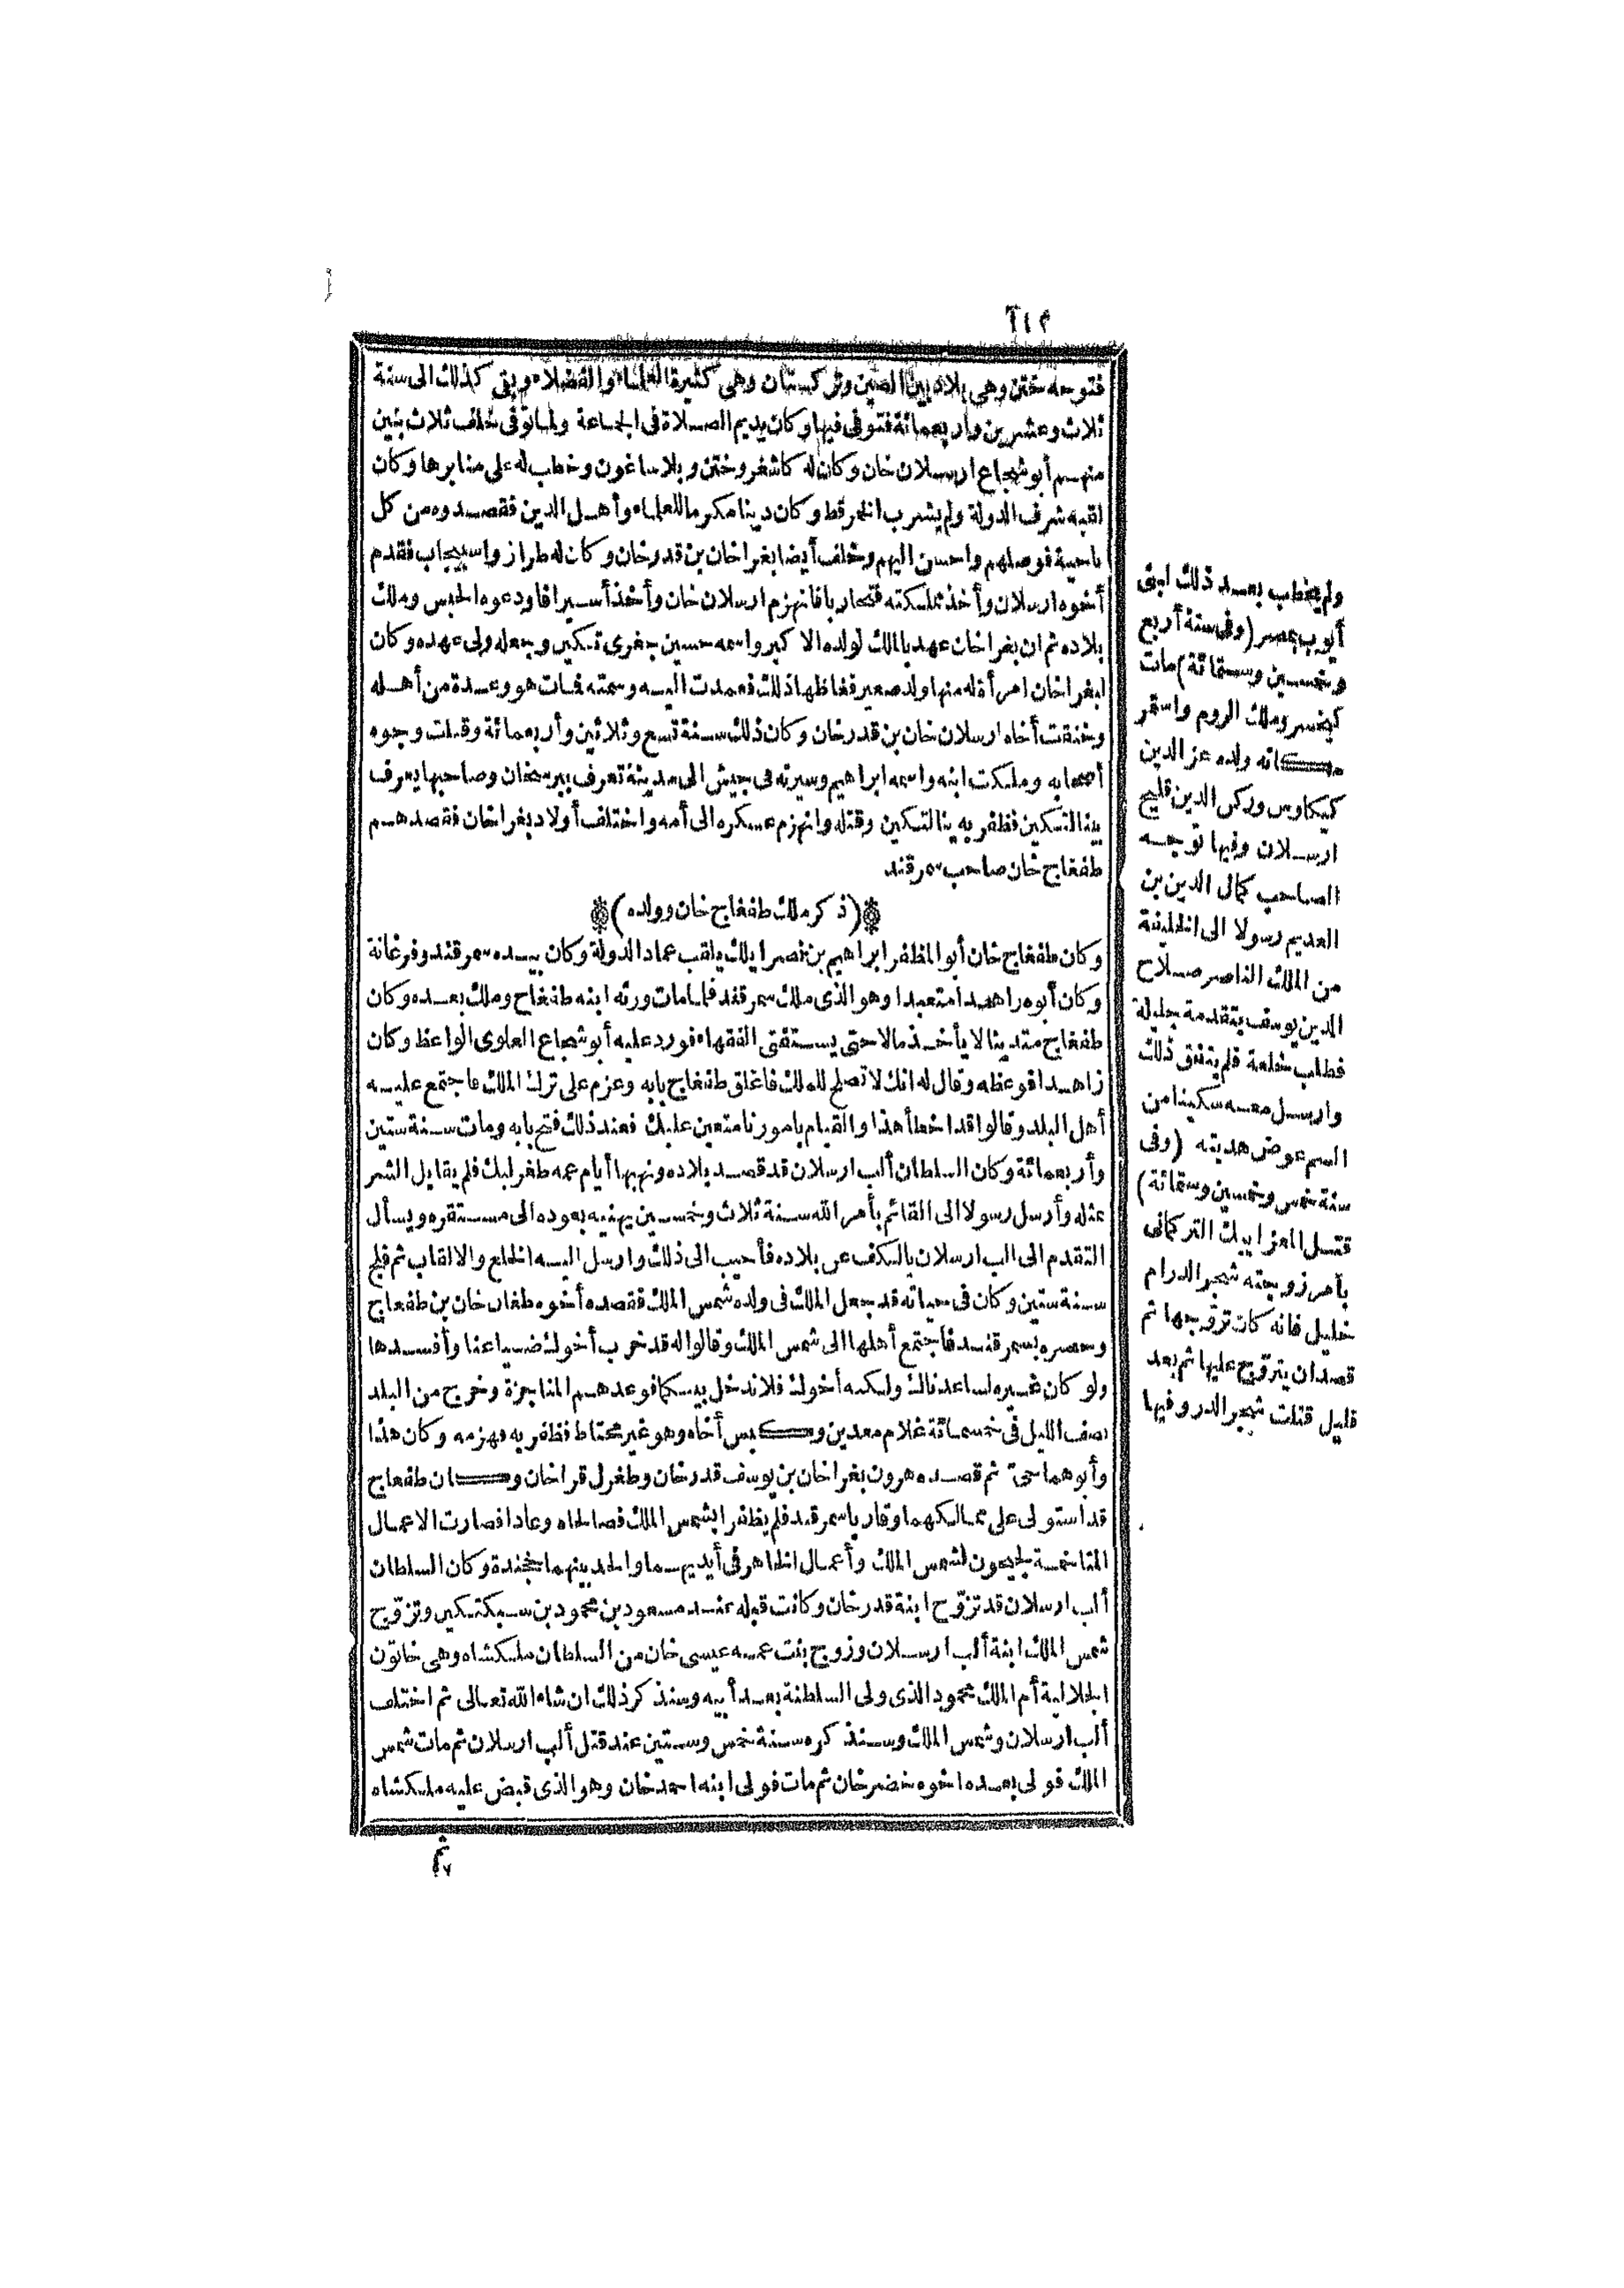 ٢١٢
فتوحه ختن وهي بلاد بين الصين وتركستان وهي كثيرة العلماء والفضلاء وبقى كذلك الى سنة
ثلاث وعشرين وأربعمائة فتوفى فيها وكان يديم الصلاة فى الجماعة ولما توفى خلف ثلاث بنين
منهم أبو شجاع ارسلان خان وكان له كاشغر وختن وبلاساغون وخطب له على منابرها وكان
لقبه شرف الدولة ولم يشرب الخمر قط وكان دينا مكرما للعلماء وأهل الدين فقصدوه من كل
ناحية فوصلهم واحسن اليهم وخلف أيضا بغراخان بن قدرخان وكان له طراز واسبيجاب فقدم
أخوه ارسلان وأخذ مملكته فتحاربا فانهزم ارسلان خان وأخذ أسيرا فاودعوه الحبس وملك
بلاده ثم ان بغراخان عهد بالملك لولده الاكبر واسمه حسين جغرى تكين وجعله ولى عهده وكان
لبغراخان امرأة له منها ولد صغير فغاظها ذلك فعمدت اليه وسمته فمات هو وعدة من أهله
وخنقت أخاه ارسلان خان بن قدرخان وكان ذلك سنة تسع وثلاثين وأربعمائة وقتلت وجوه
أصحابه وملكت ابنه واسمه ابراهيم وسيرته فى جيش الى مدينة تعرف ببرسخان وصاحبها يعرف
بينالتكين فظفر به ينالتكين وقتله وانهزم عسكره الى أمه واختلف أولاد بغراخان فقصدهم
طفغاج خان صاحب سمرقند
(ذكر ملك طفغاج خان وولده)
وكان طفغاج خان أبو المظفر ابراهيم بن نصر ايلك يلقب عماد الدولة وكان بيده سمرقند وفرغانة
وكان أبوه زاهدا متعبدا وهو الذى ملك سمرقند فلما مات ورثه ابنه طفغاج وملك بعده وكان
طفغاج متدينا لا يأخذ مالا حتى يستفتى الفقهاء فورد عليه أبو شجاع العلوى الواعظ وكان
زاهدا فوعظه وقال له انك لا تصلح للملك فاغلق طفغاج بابه وعزم على ترك الملك فاجتمع عليه
أهل البلد وقالوا قد اخطأ هذا والقيام بامورنا متعين عليك فعند ذلك فتح بابه ومات سنة ستين
وأربعمائة وكان السلطان ألب ارسلان قد قصد بلاده ونهبها أيام عمه طغرلبك فلم يقابل الشر
بمثله وأرسل رسولا الى القائم بأمر الله سنة ثلاث وخمسين يهنيه بعوده الى مستقره ويسأل
التقدم الى الب ارسلان بالكف عن بلاده فأجيب الى ذلك وارسل اليه الخلع والالقاب ثم فلج
سنة ستين وكان فى حياته قد جعل الملك فى ولده شمس الملك فقصده أخوه طغان خان بن طفغاج
وحصره بسمرقند فاجتمع أهلها الى شمس الملك وقالوا له قد خرب أخوك ضياعنا وأفسدها
ولو كان غيره لساعدناك ولكنه أخوك فلا ندخل بينكما فوعدهم المناجزة وخرج من البلد
نصف الليل فى خمسمائة غلام معدين وكبس أخاه وهو غير محتاط فظفر به فهزمه وكان هذا
وأبوهما حى ثم قصده هرون بغراخان بن يوسف قدرخان وطغرل قراخان وكان طفغاج
قد استولى على ممالكهما وقاربا سمرقند فلم يظفرا بشمس الملك فصالحاه وعادا فصارت الاعمال
المتاخمة لجيحون لشمس الملك وأعمال الخاهر فى أيديهما والحد بينهما خجندة وكان السلطان
ألب ارسلان قد تزوّج ابنة قدرخان وكانت قبله عند مسعود بن محمود بن سبكتكين وتزوّج
شمس الملك ابنة ألب ارسلان وزوج بنت عمه عيسى خان من السلطان ملكشاه وهى خاتون
الجلالية أم الملك محمود الذى ولى السلطنة بعد أبيه وسنذكر ذلك ان شاء الله تعالى ثم اختلف
ألب ارسلان وشمس الملك وسنذكره سنة خمس وستين عند قتل ألب ارسلان ثم مات شمس
الملك فولى بعده اخوه خضرخان ثم مات فولى ابنه احمدخان وهو الذى قبض عليه ملكشاه
ثم
ولم يخطب بعد ذلك لبنى
أيوب بمصر (وفى سنة أربع
وخمسين وستمائة) مات
كيخسرو ملك الروم واستقر
مكانه ولده عز الدين
كيكاوس وركن الدين قليج
ارسلان وفيها توجه
الصاحب كمال الدين بن
العديم رسولا الى الخليفة
من الملك الناصر صلاح
الدين يوسف بتقدمة جليلة
فطلب خلعة فلم يتفق ذلك
وارسل معه سكينا من
اليسم عوض هديته (وفى
سنة خمس وخمسين وستمائة)
قتل المعز ايبك التركمانى
بأمر زوجته شجر الدر ام
خليل فانه كان تزوّجها ثم
قصد ان يتزوّج عليها ثم بعد
قليل قتلت شجر الدر وفيها